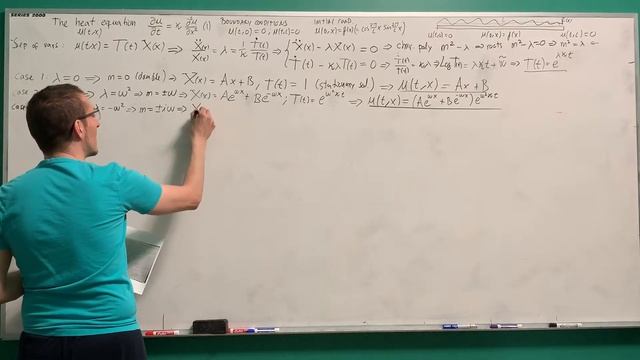 SERIES 2000
The heat equation ∂u/∂t = κ ∂²u/∂x² (1)
u(t,x)
BOUNDARY CONDITIONS
u(t,0)=0; u(t,ℓ)=0
INITIAL COND.
u(0,x)=f(x)
u(t,0)=0 u(0,x)=f(x) u(t,ℓ)=0
Sep of vars: u(t,x)=T(t)X(x) ⇒ Ẍ(x)/X(x) = λ = 1/κ Ṫ(t)/T(t) ⇒ { Ẍ(x) - λX(x) = 0 ⇒ char. poly m²-λ ⇒ roots m²-λ=0 ⇒ m²=λ
Ṫ(t) - κλT(t) = 0 ⇒ Ṫ(t)/T(t) = κλ ⇒ ⇒ T(t) = e^{λκt}
Case 1: λ=0 ⇒ m=0 (double) ⇒ X(x) = Ax+B, T(t) = 1 (stationary sol) ⇒ u(t,x) = Ax+B
λ=ω² ⇒ m=±ω ⇒ X(x) = Ae^{ωx} + Be^{-ωx}; T(t) = e^{ω²κt} ⇒ u(t,x) = (Ae^{ωx} + Be^{-ωx})e^{ω²κt}
= -ω² ⇒ m=±iω ⇒ X